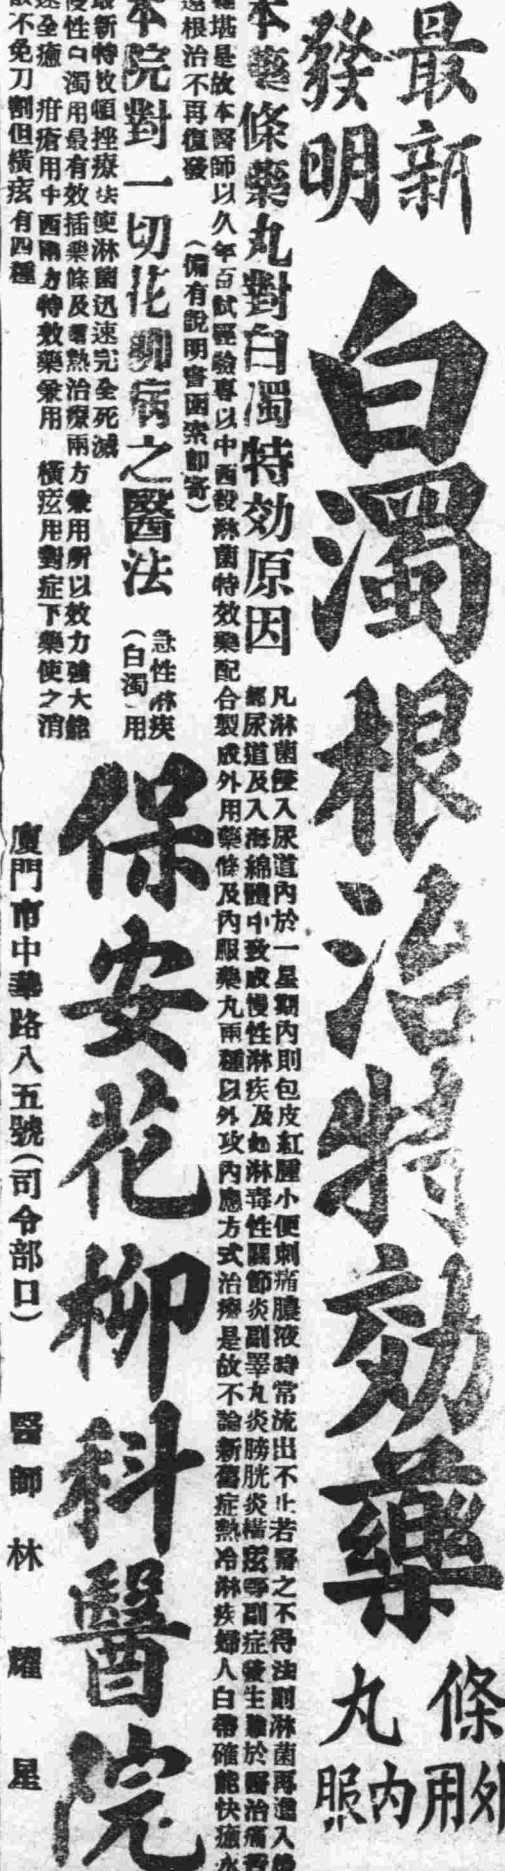 最新
發明
白濁根治特効藥
條 外用
丸 內服
本藥條藥丸對白濁特効原因
凡淋菌侵入尿道內於一星期內則包皮紅腫小便刺痛膿液時常流出不止若醫之不得法則淋菌再進入
尿道及入海綿體中致成慢性淋疾及如淋毒性關節炎副睪丸炎膀胱炎橫痃等副症發生難於醫治痛苦
堪是故本醫師以久年百試經驗專以中西殺淋菌特效藥配合製成外用藥條及內服藥丸兩種以外攻內應方式治療是故不論新舊症熱冷淋疾婦人白帶確能快癒永
遠根治不再復發 (備有說明書函索卽寄)
本院對一切花柳病之醫法
急性淋疾
(白濁)用
最新特效頓挫療法使淋菌迅速完全死滅
慢性白濁用最有效插藥條及電熱治療兩方兼用所以效力強大能
速全癒 疳瘡用中西兩方特效藥兼用 橫痃用對症下藥使之消
散不免刀割但橫痃有四種
保安花柳科醫院
廈門市中華路八五號(司令部口)
醫師林耀星